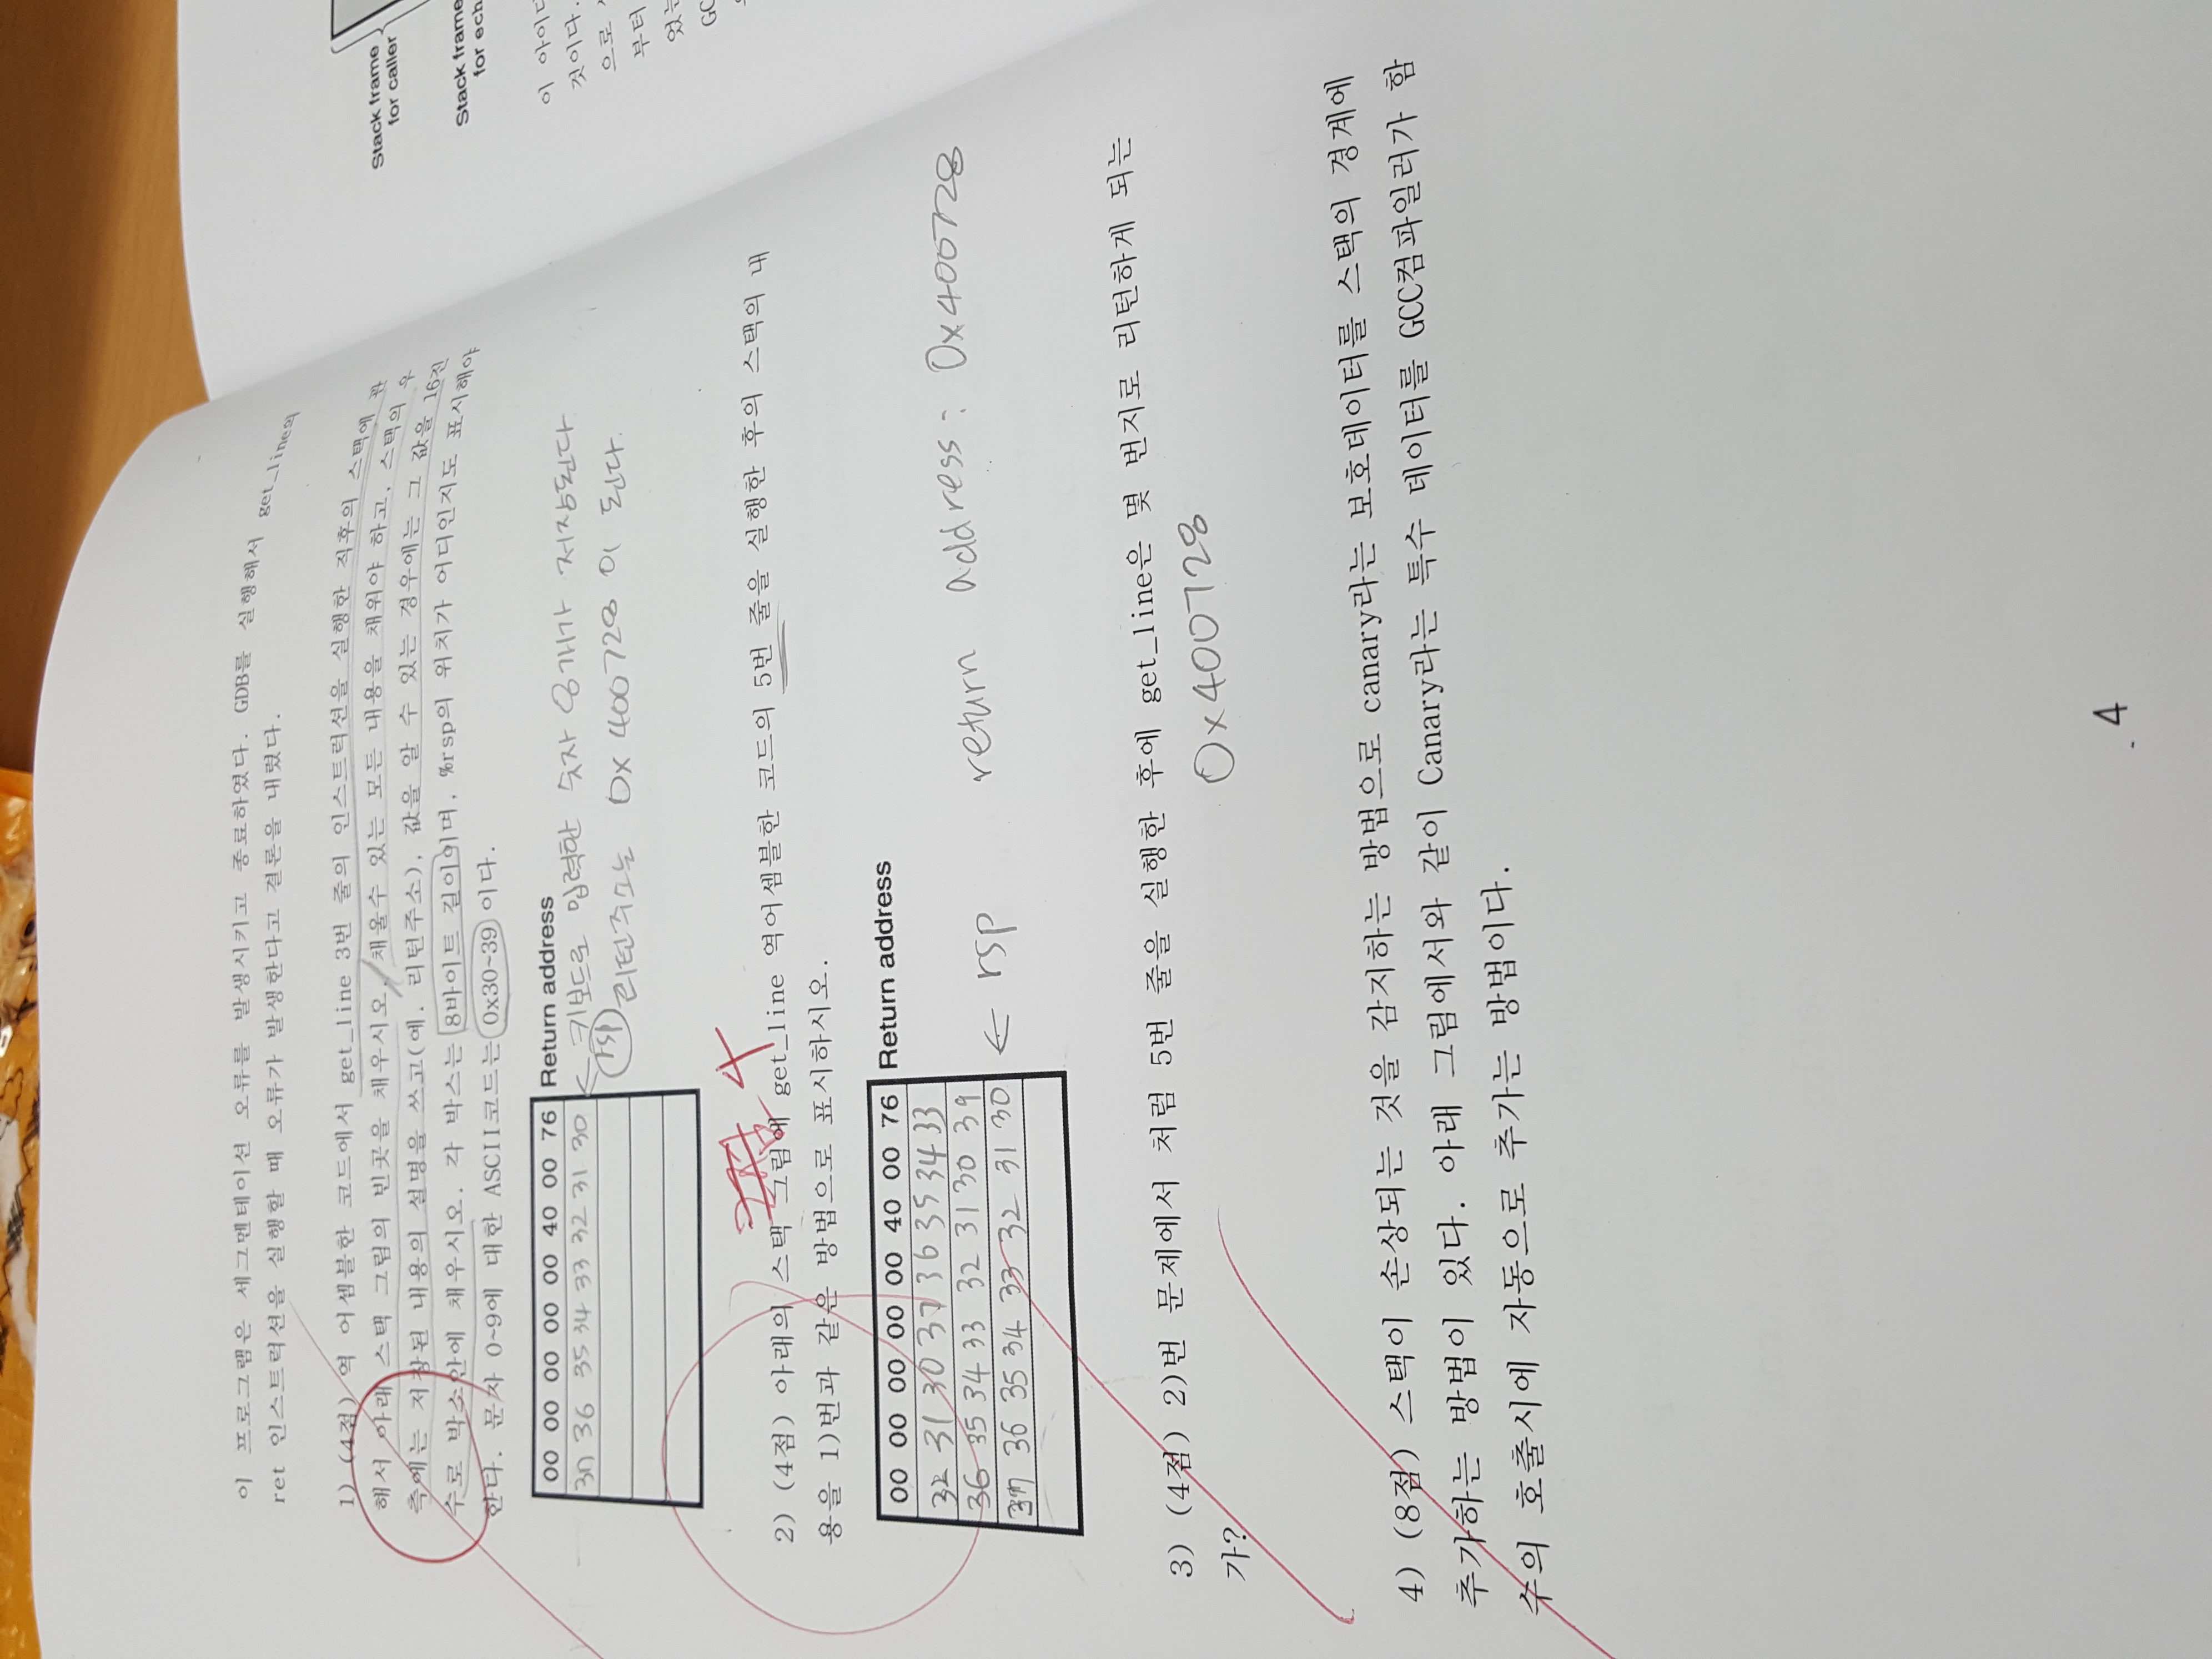 이 프로그램은 세그멘테이션 오류를 발생시키고 종료하였다. GDB를 실행해서 get_line의
ret 인스트럭션을 실행할 때 오류가 발생한다고 결론을 내렸다.
1) (4점) 역 어셈블한 코드에서 get_line 3번 줄의 인스트럭션을 실행한 직후의 스택에 관
해서 아래 스택 그림의 빈곳을 채우시오. 채울수 있는 모든 내용을 채워야 하고, 스택의 우
측에는 저장된 내용의 설명을 쓰고(예. 리턴주소), 값을 알 수 있는 경우에는 그 값을 16진
수로 박스안에 채우시오. 각 박스는 8바이트 길이이며, %rsp의 위치가 어디인지도 표시해야
한다. 문자 0~9에 대한 ASCII코드는 0x30~39 이다.
00 00 00 00 00 40 00 76 Return address
37 36 35 34 33 32 31 30 ← 키보드로 입력한 숫자 8개가 저장된다
rsp 리턴주소는 0x400728 이 된다.
4
2) (4점) 아래의 스택 그림에 get_line 역어셈블한 코드의 5번 줄을 실행한 후의 스택의 내
용을 1)번과 같은 방법으로 표시하시오.
00 00 00 00 00 40 00 76 Return address
32 31 30 37 36 35 34 33
36 35 34 33 32 31 30 39
37 36 35 34 33 32 31 30 ← rsp return address: 0x400728
3) (4점) 2)번 문제에서 처럼 5번 줄을 실행한 후에 get_line은 몇 번지로 리턴하게 되는
가?
0x400728
4) (8점) 스택이 손상되는 것을 감지하는 방법으로 canary라는 보호데이터를 스택의 경계에
추가하는 방법이 있다. 아래 그림에서와 같이 Canary라는 특수 데이터를 GCC컴파일러가 함
수의 호출시에 자동으로 추가는 방법이다.
4
Stack frame
for caller
Stack frame
for ech
이 아이디
것이다.
으로
부터
었는
GC